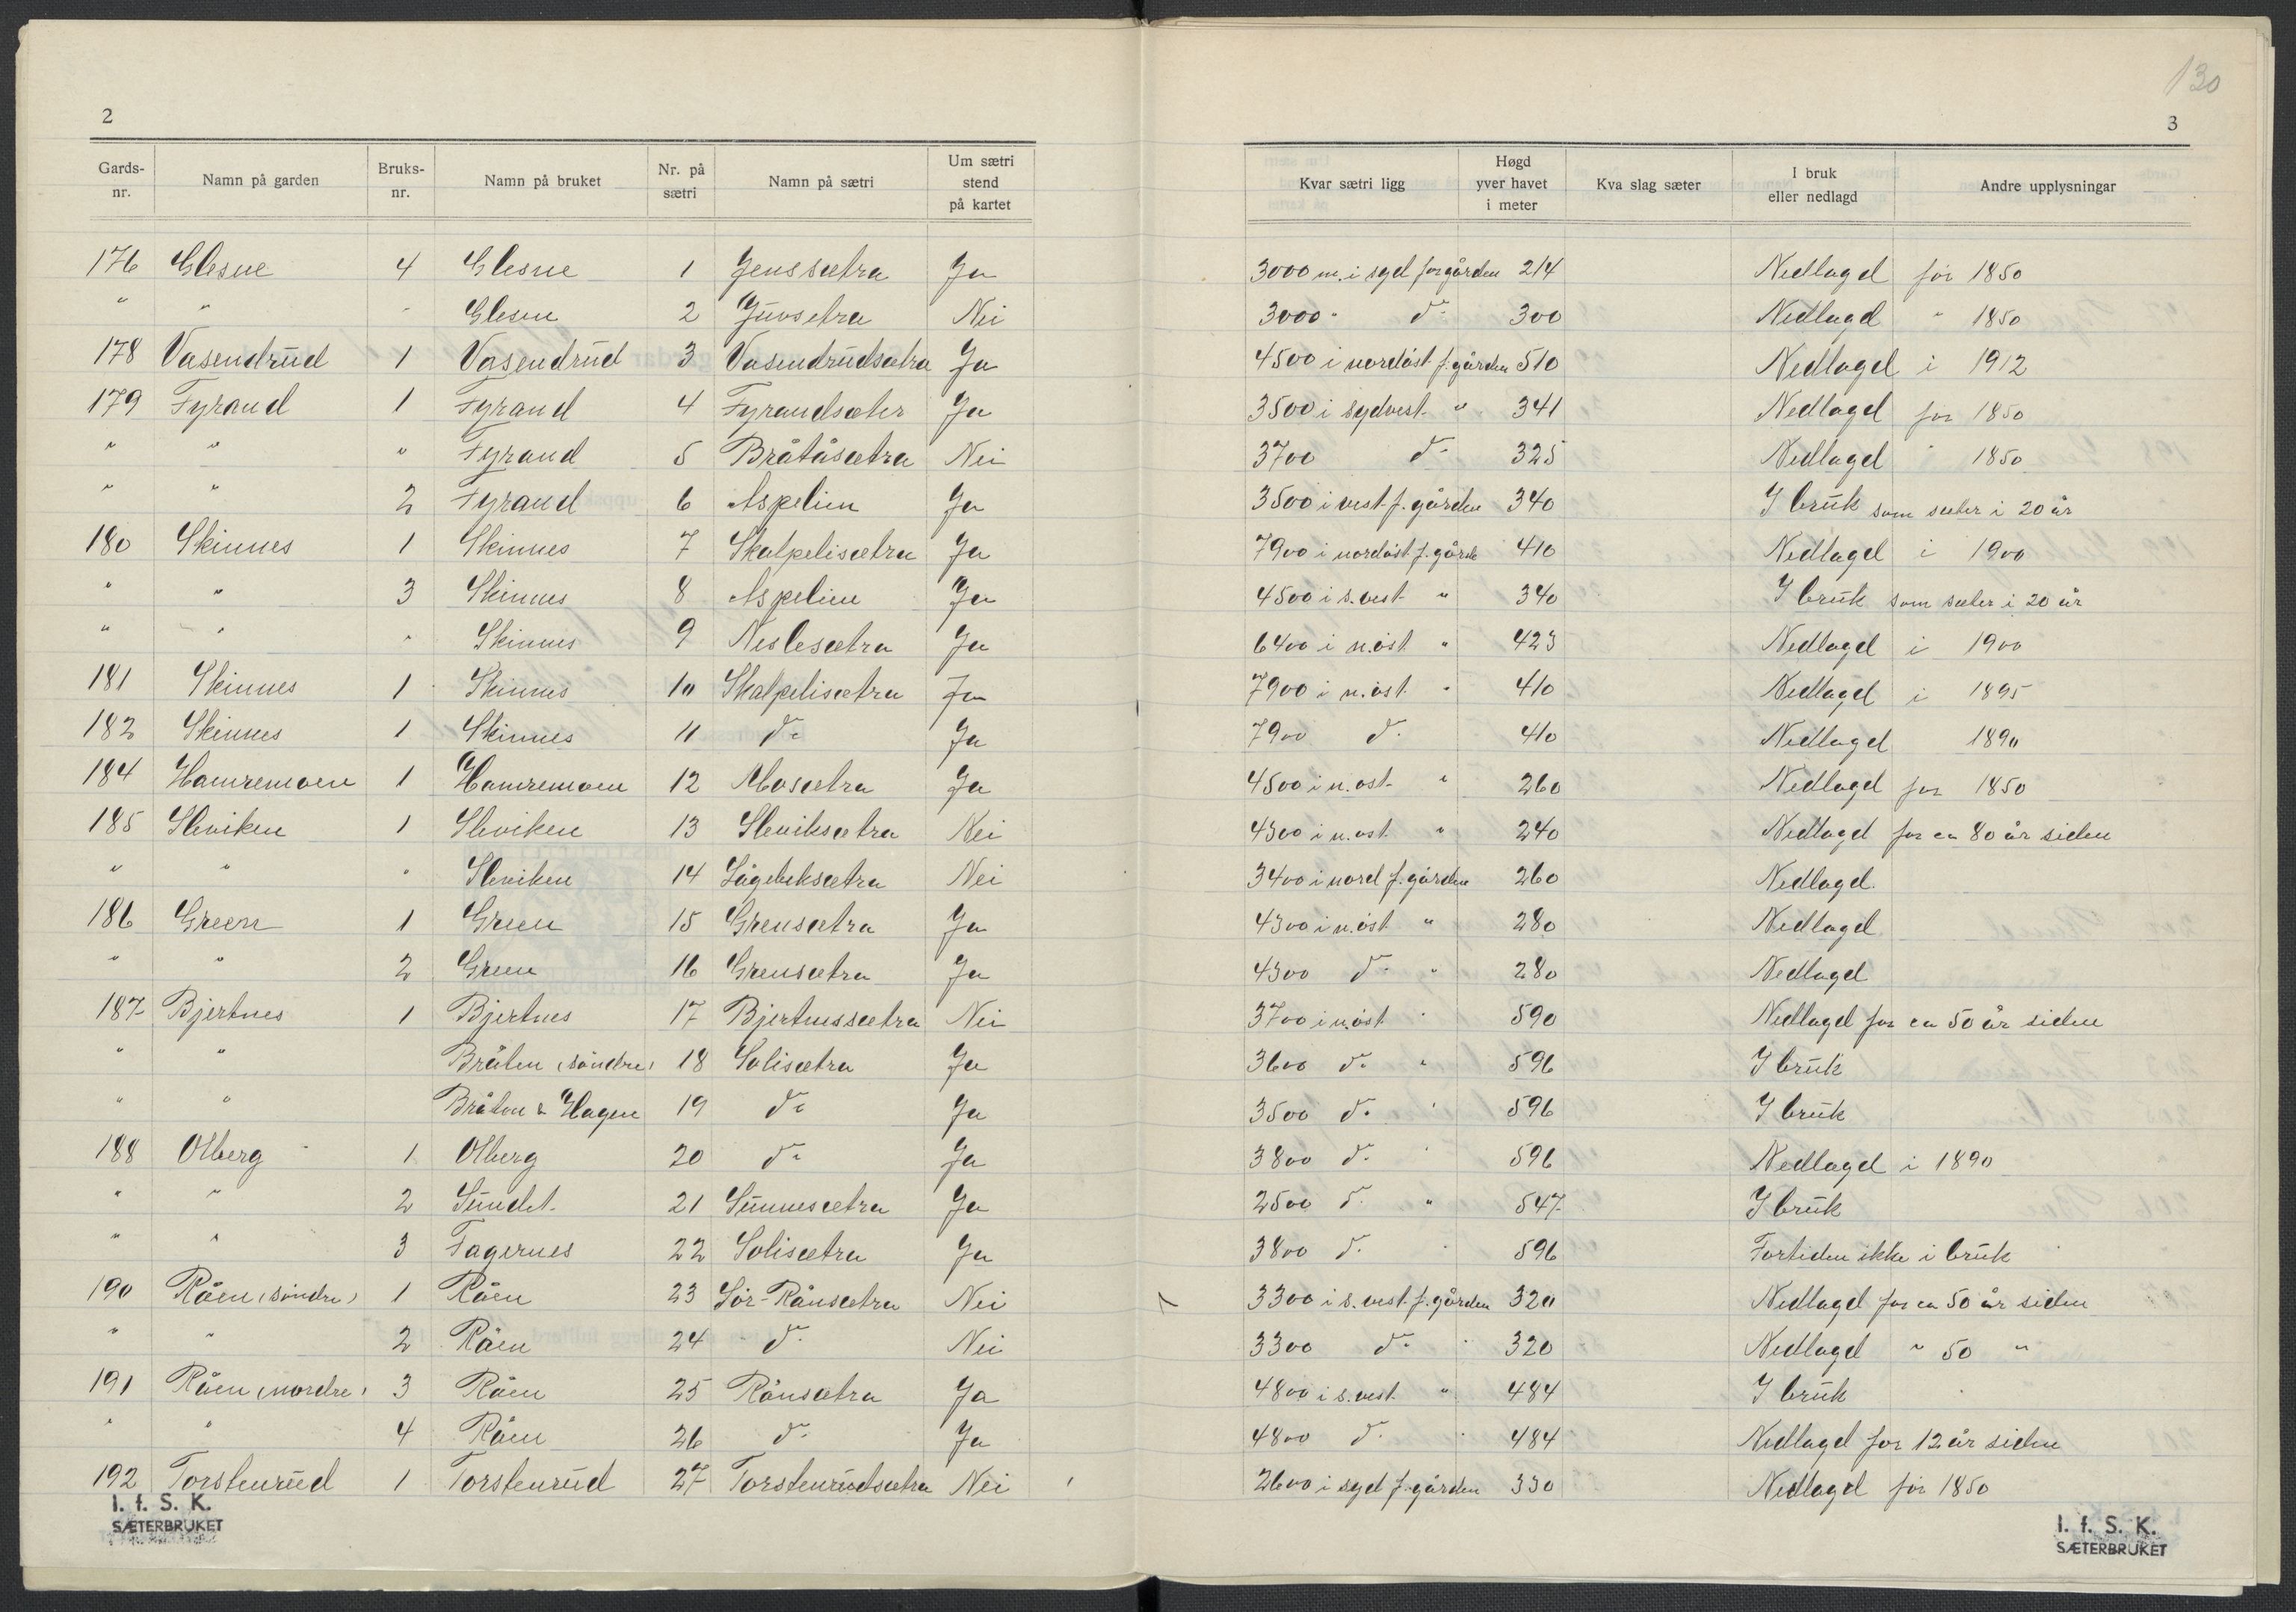 130
2
3
Gards-nr. Namn på garden Bruks-nr. Namn på bruket Nr. på sætri Namn på sætri Um sætri stend på kartet Kvar sætri ligg Høgd yver havet i meter Kva slag sæter I bruk eller nedlagd Andre upplysningar
176 Glesne 4 Glesne 1 Jenssætra Ja 3000 m. i syd for gården 214 Nedlagd før 1850
" " " Glesne 2 Juvsetra Nei 3000 " do 300 Nedlagd " 1850
178 Vasendrud 1 Vasendrud 3 Vasendrudsætra Ja 4500 i nordöst f. gården 510 Nedlagd i 1912
179 Fyrand 1 Fyrand 4 Fyrandsæter Ja 3500 i sydvest " 341 Nedlagd før 1850
" " " Fyrand 5 Bråtåsætra Nei 3700 do 325 Nedlagd " 1850
" " 2 Fyrand 6 Aspelien Ja 3500 i vest f. gården 340 I bruk som sæter i 20 år
180 Skinnes 1 Skinnes 7 Skalpelisætra Ja 7900 i nordöst f. gården 410 Nedlagd i 1900
" " 3 Skinnes 8 Aspelien Ja 4500 i s. vest " 340 I bruk som sæter i 20 år
" " " Skinnes 9 Neslesætra Ja 6400 i n. öst " 423 Nedlagd i 1900
181 Skinnes 1 Skinnes 10 Skalpelisætra Ja 7900 i n. öst " 410 Nedlagd i 1895
182 Skinnes 1 Skinnes 11 do Ja 7900 do 410 Nedlagd 1890
184 Hamremoen 1 Hamremoen 12 Mosætra Ja 4500 i n. öst " 260 Nedlagd før 1850
185 Sleviken 1 Sleviken 13 Sleviksætra Nei 4300 i n. öst " 240 Nedlagd for ca 80 år siden
" " " Sleviken 14 Lågebeksætra Nei 3400 i nord f. gården 260 Nedlagd.
186 Green 1 Green 15 Grensætra Ja 4300 i n. öst " 280 Nedlagd
" " 2 Green 16 Grensætra Ja 4300 do " 280 Nedlagd
187 Bjertnes 1 Bjertnes 17 Bjertnessætra Nei 3700 i n. öst " 590 Nedlagd for ca 50 år siden
" " Bråten (söndre) 18 Solisætra Ja 3600 do " 596 I bruk
" " Bråten & Hagen 19 do Ja 3500 do " 596 I bruk
188 Olberg 1 Olberg 20 do Ja 3800 do " 596 Nedlagd i 1890
" " 2 Sundet 21 Sunnesætra Ja 2500 do " 547 I bruk
" " 3 Fagernes 22 Solisætra Ja 3800 do " 596 Fortiden ikke i bruk
190 Råen (söndre) 1 Råen 23 Sör-Rånsætra Nei 3300 i s. vest f. gården 320 Nedlagd for ca 50 år siden
" " 2 Råen 24 do Nei 3300 do " 320 Nedlagd " 50 "
191 Råen (nordre) 3 Råen 25 Rånsætra Ja 4800 i s. vest " 484 I bruk
" " 4 Råen 26 do Ja 4800 do " 484 Nedlagd for 12 år siden
192 Torstenrud 1 Torstenrud 27 Torstenrudsætra Nei 2600 i syd f. gården 330 Nedlagd før 1850
I. f. S. K.
SÆTERBRUKET
I. f. S. K.
SÆTERBRUKET